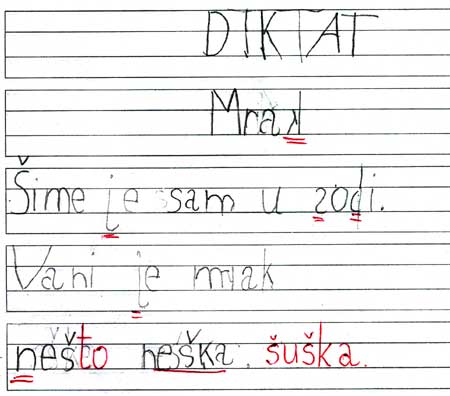 DIKTAT
Mrak
Šime je sam u zodi.
Vani je mrak
nešto neška šuška.